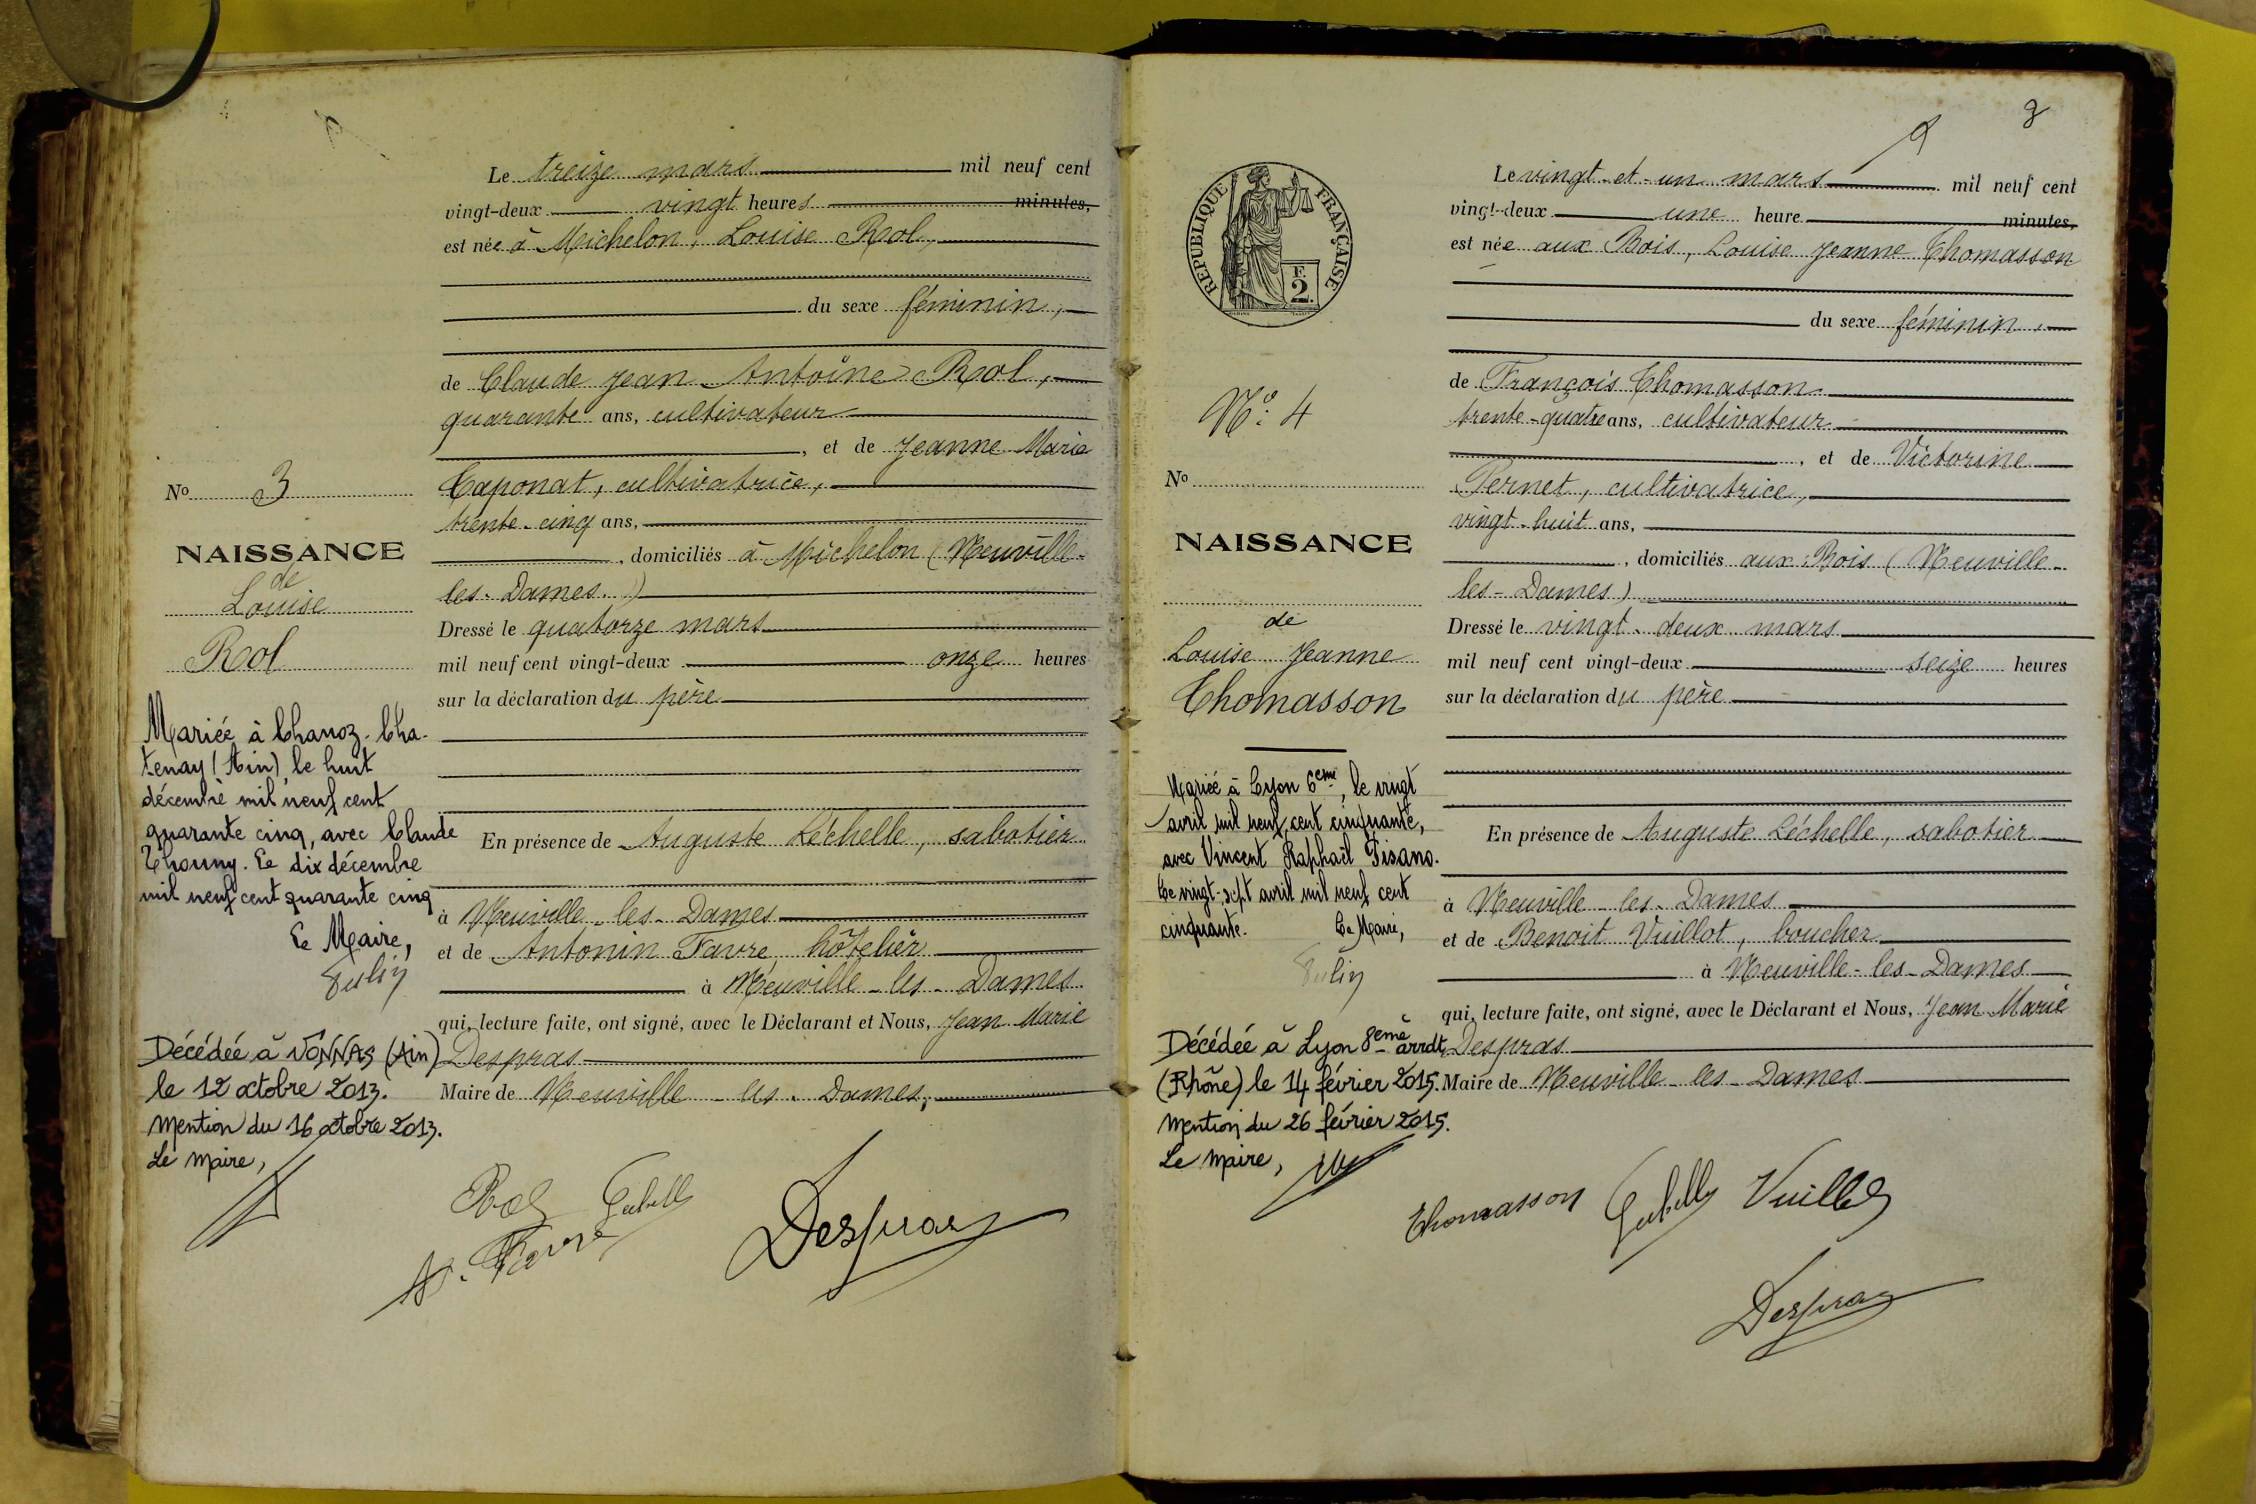 Le treize mars mil neuf cent
vingt-deux vingt heures minutes,
est née à Michelon, Louise Rol,
du sexe féminin,
de Claude Jean Antoine Rol,
quarante ans, cultivateur
, et de Jeanne Marie
Caponat, cultivatrice,
trente-cinq ans,
, domiciliés à Michelon (Neuville-
les-Dames.)
Dressé le quatorze mars
mil neuf cent vingt-deux onze heures
sur la déclaration du père
En présence de Auguste Léchelle, sabotier
à Neuville-les-Dames
et de Antonin Favre, hôtelier
à Neuville-les-Dames
qui, lecture faite, ont signé, avec le Déclarant et Nous, Jean Marie
Despras
Maire de Neuville-les-Dames,
Rol
A. Favre
Despras
No 3
NAISSANCE
de
Louise
Rol
Mariée à Chanoz-Cha-
tenay (Ain), le huit
décembre mil neuf cent
quarante cinq, avec Claude
Thouny. Le dix décembre
mil neuf cent quarante cinq
Le Maire,
Décédée à VONNAS (Ain)
le 12 octobre 2013.
Mention du 16 octobre 2013.
Le Maire,
Le vingt-et-un mars mil neuf cent
vingt-deux une heure minutes,
est née aux Bois, Louise Jeanne Thomasson
du sexe féminin,
de François Thomasson
trente-quatre ans, cultivateur
, et de Victorine
Pernet, cultivatrice,
vingt-huit ans,
, domiciliés aux Bois (Neuville-
les-Dames)
Dressé le vingt-deux mars
mil neuf cent vingt-deux seize heures
sur la déclaration du père
En présence de Auguste Léchelle, sabotier
à Neuville-les-Dames
et de Benoit Vuillot, boucher
à Neuville-les-Dames
qui, lecture faite, ont signé, avec le Déclarant et Nous, Jean Marie
Despras
Maire de Neuville-les-Dames
Thomasson Vuillot
Despras
RÉPUBLIQUE FRANÇAISE
F.
2.
No: 4
No
NAISSANCE
de
Louise Jeanne
Thomasson
Mariée à Lyon 6eme, le vingt
avril mil neuf cent cinquante,
avec Vincent Raphaël Pisano.
Le vingt-sept avril mil neuf cent
cinquante. Le Maire,
Décédée à Lyon 8eme arrdt
(Rhône) le 14 février 2015.
Mention du 26 février 2015.
Le Maire,